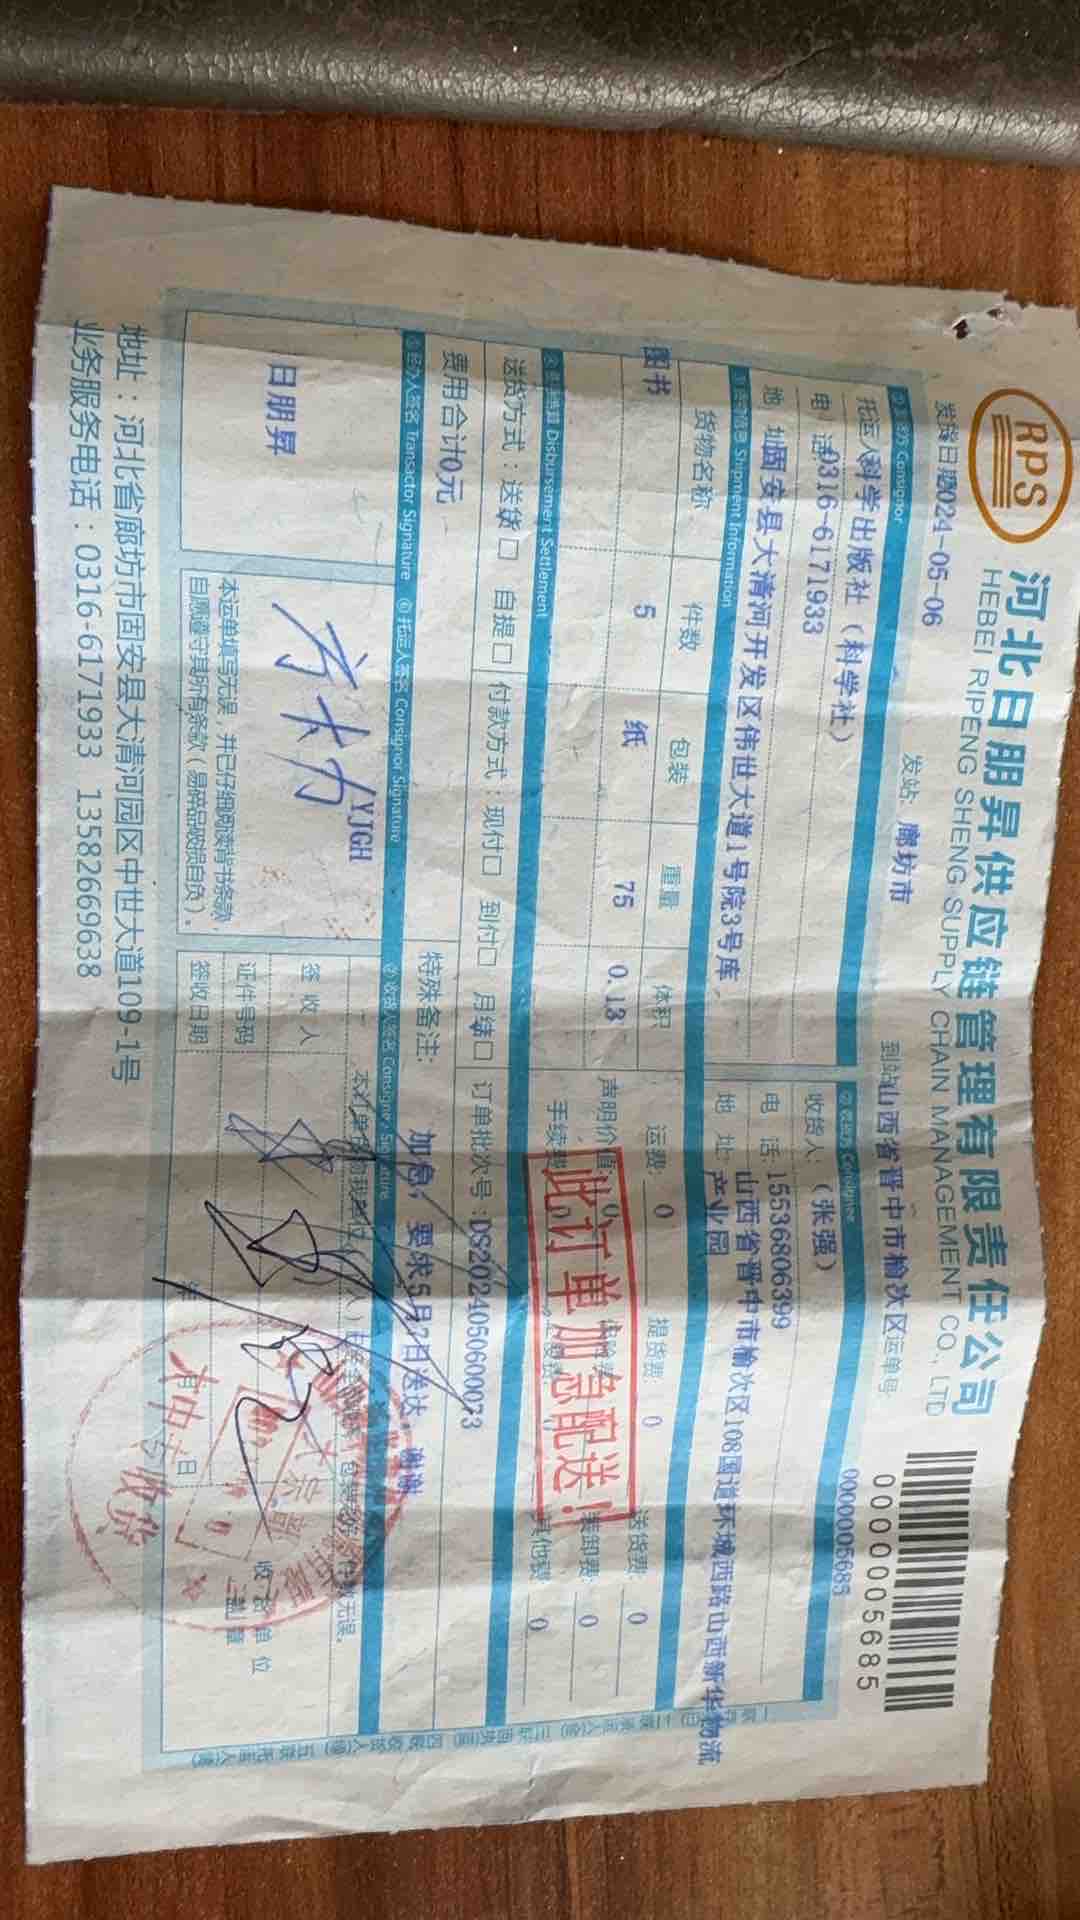 RPS
河北日朋昇供应链管理有限责任公司
HEBEI RIPENG SHENG SUPPLY CHAIN MANAGEMENT CO., LTD
0000005685
发货日期2024-05-06 发站: 廊坊市 到站山西省晋中市榆次区运单号: 0000005685
Consignor
托运人科学出版社（科学社）
电 话0316-6171933
地 址固安县大清河开发区伟世大道1号院3号库
②收货方 Consignee
收货人: （张强）
电 话:15536806399
地 址:山西省晋中市榆次区108国道环城西路山西新华物流
产业园
Shipment Information
货物名称 件数 包装 重量 体积
图书 5 纸 75 0.13
运费: 0 提货费: 0 送货费: 0
声明价值: 0 装卸费: 0
手续费: 0 其他费: 0
此订单加急配送!
Disbursement Settlement
送货方式：送货□ 自提□ 付款方式：现付□ 到付□ 月结□ 订单批次号:DS20240506000073
费用合计0元
特殊备注: 加急；要求5月7日送达。谢谢
⑤经办人签名 Transactor Signature ⑥托运人签名 Consignor Signature ⑦收货人签名 Consignee Signature
日朋昇
YJGH
本运单填写无误，并已仔细阅读背书条款，
自愿遵守其所有条款（易碎品破损自负）。
签 收 人
证件号码
签收日期
收货单位
盖章
年 日
收货
地址：河北省廊坊市固安县大清河园区中世大道109-1号
业务服务电话：0316-6171933 13582669638